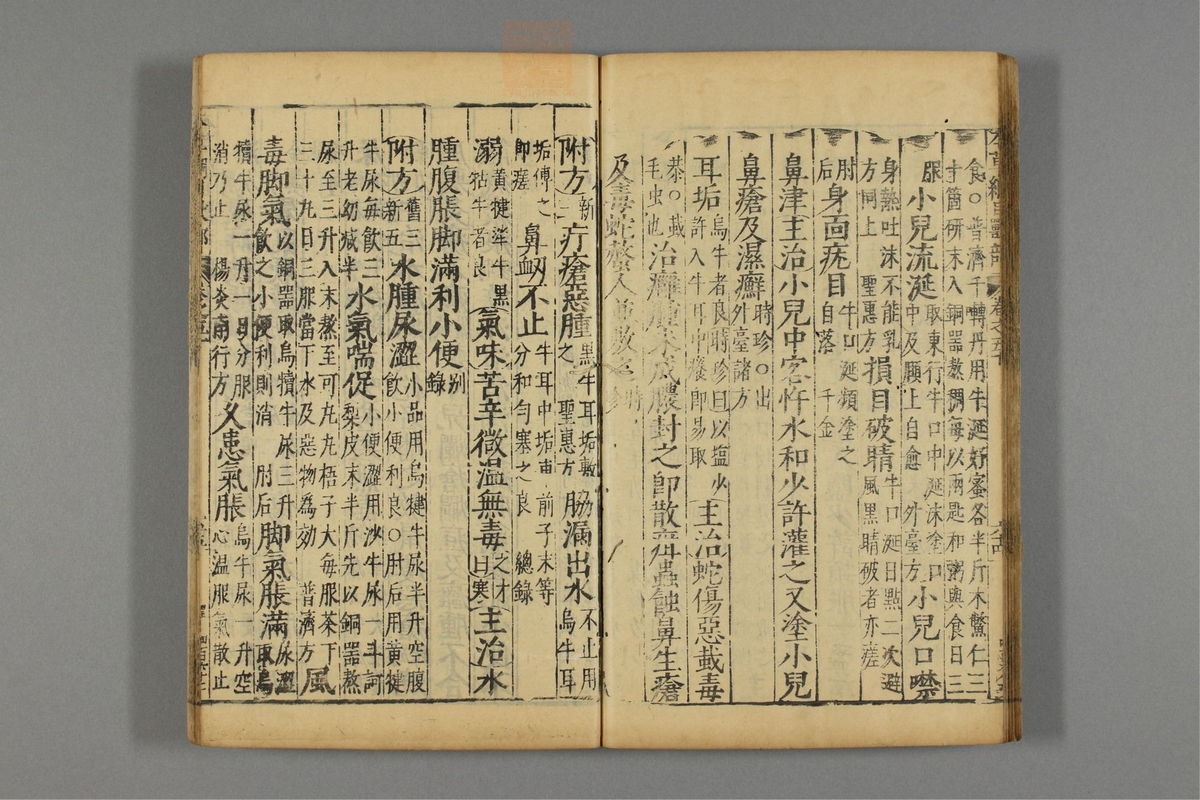 食○普濟千轉丹用牛涎好蜜各半斤木鱉仁三
十箇研末入銅器熬稠每以兩匙和粥與食日三
服 小兒流涎 取東行牛口中涎沫塗口中及頤上自愈 外臺方 小兒口噤
身熱吐沫不能乳 聖惠方 方同上 損目破睛 牛口涎日點二次避風黑睛破者亦瘥
肘后 身面疣目 牛口涎頻塗之自落 千金
鼻津主治小兒中客忤水和少許灌之又塗小兒
鼻瘡及濕癬 時珍○出外臺諸方
耳垢 烏牛者良時珍曰以鹽少許入牛耳中癢即易取 主治蛇傷惡𧊕毒
恭○𧊕毛蟲也 治癰腫未成膿封之即散疳蟲蝕鼻生瘡
及毒蛇螫人 並敷之 時珍
附方 新二 疔瘡惡腫 黑牛耳垢敷之 聖惠方 脇漏出水 不止用烏牛耳
垢傅之即瘥 鼻衂不止 牛耳中垢車前子末等分和勻塞之良 總錄
溺 黃犍𤛓牛黑牯牛者良 氣味苦辛微溫無毒 之才曰寒 主治水
腫腹脹脚滿利小便 別錄
附方 舊三新五 水腫尿澀 小品用烏犍牛尿半升空腹飲小便利良○肘后用黃犍
牛尿每飲三升老幼減半 水氣喘促 小便澀用沙牛尿一斗訶梨皮末半斤先以銅器熬
尿至三升入末熬至可丸丸梧子大每服茶下
三十丸日三服當下水及惡物爲効 普濟方 風
毒脚氣 以銅器取烏犢牛尿三升飲之小便利則消 肘后 脚氣脹滿 尿澀取烏
犢牛尿一升一日分服消乃止 楊炎南行方 又患氣脹 烏牛尿一升空心溫服氣散止